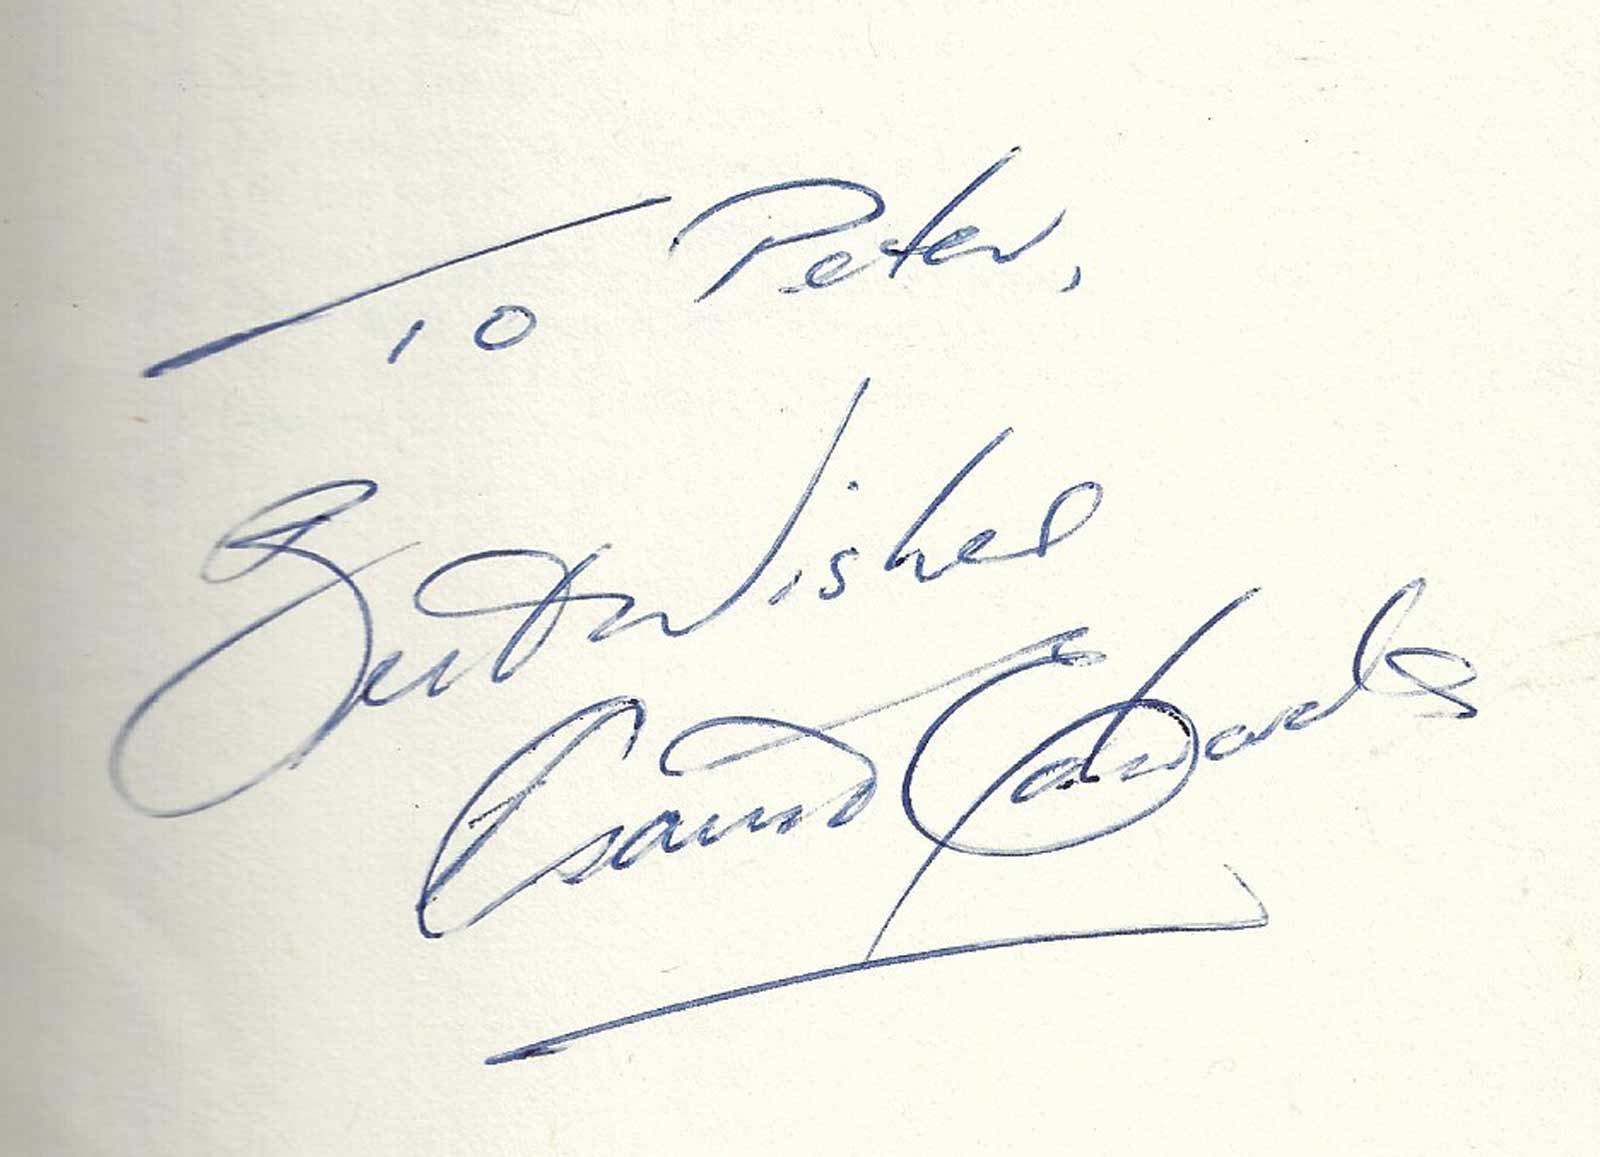 To Peter,
Best Wishes
Edwards